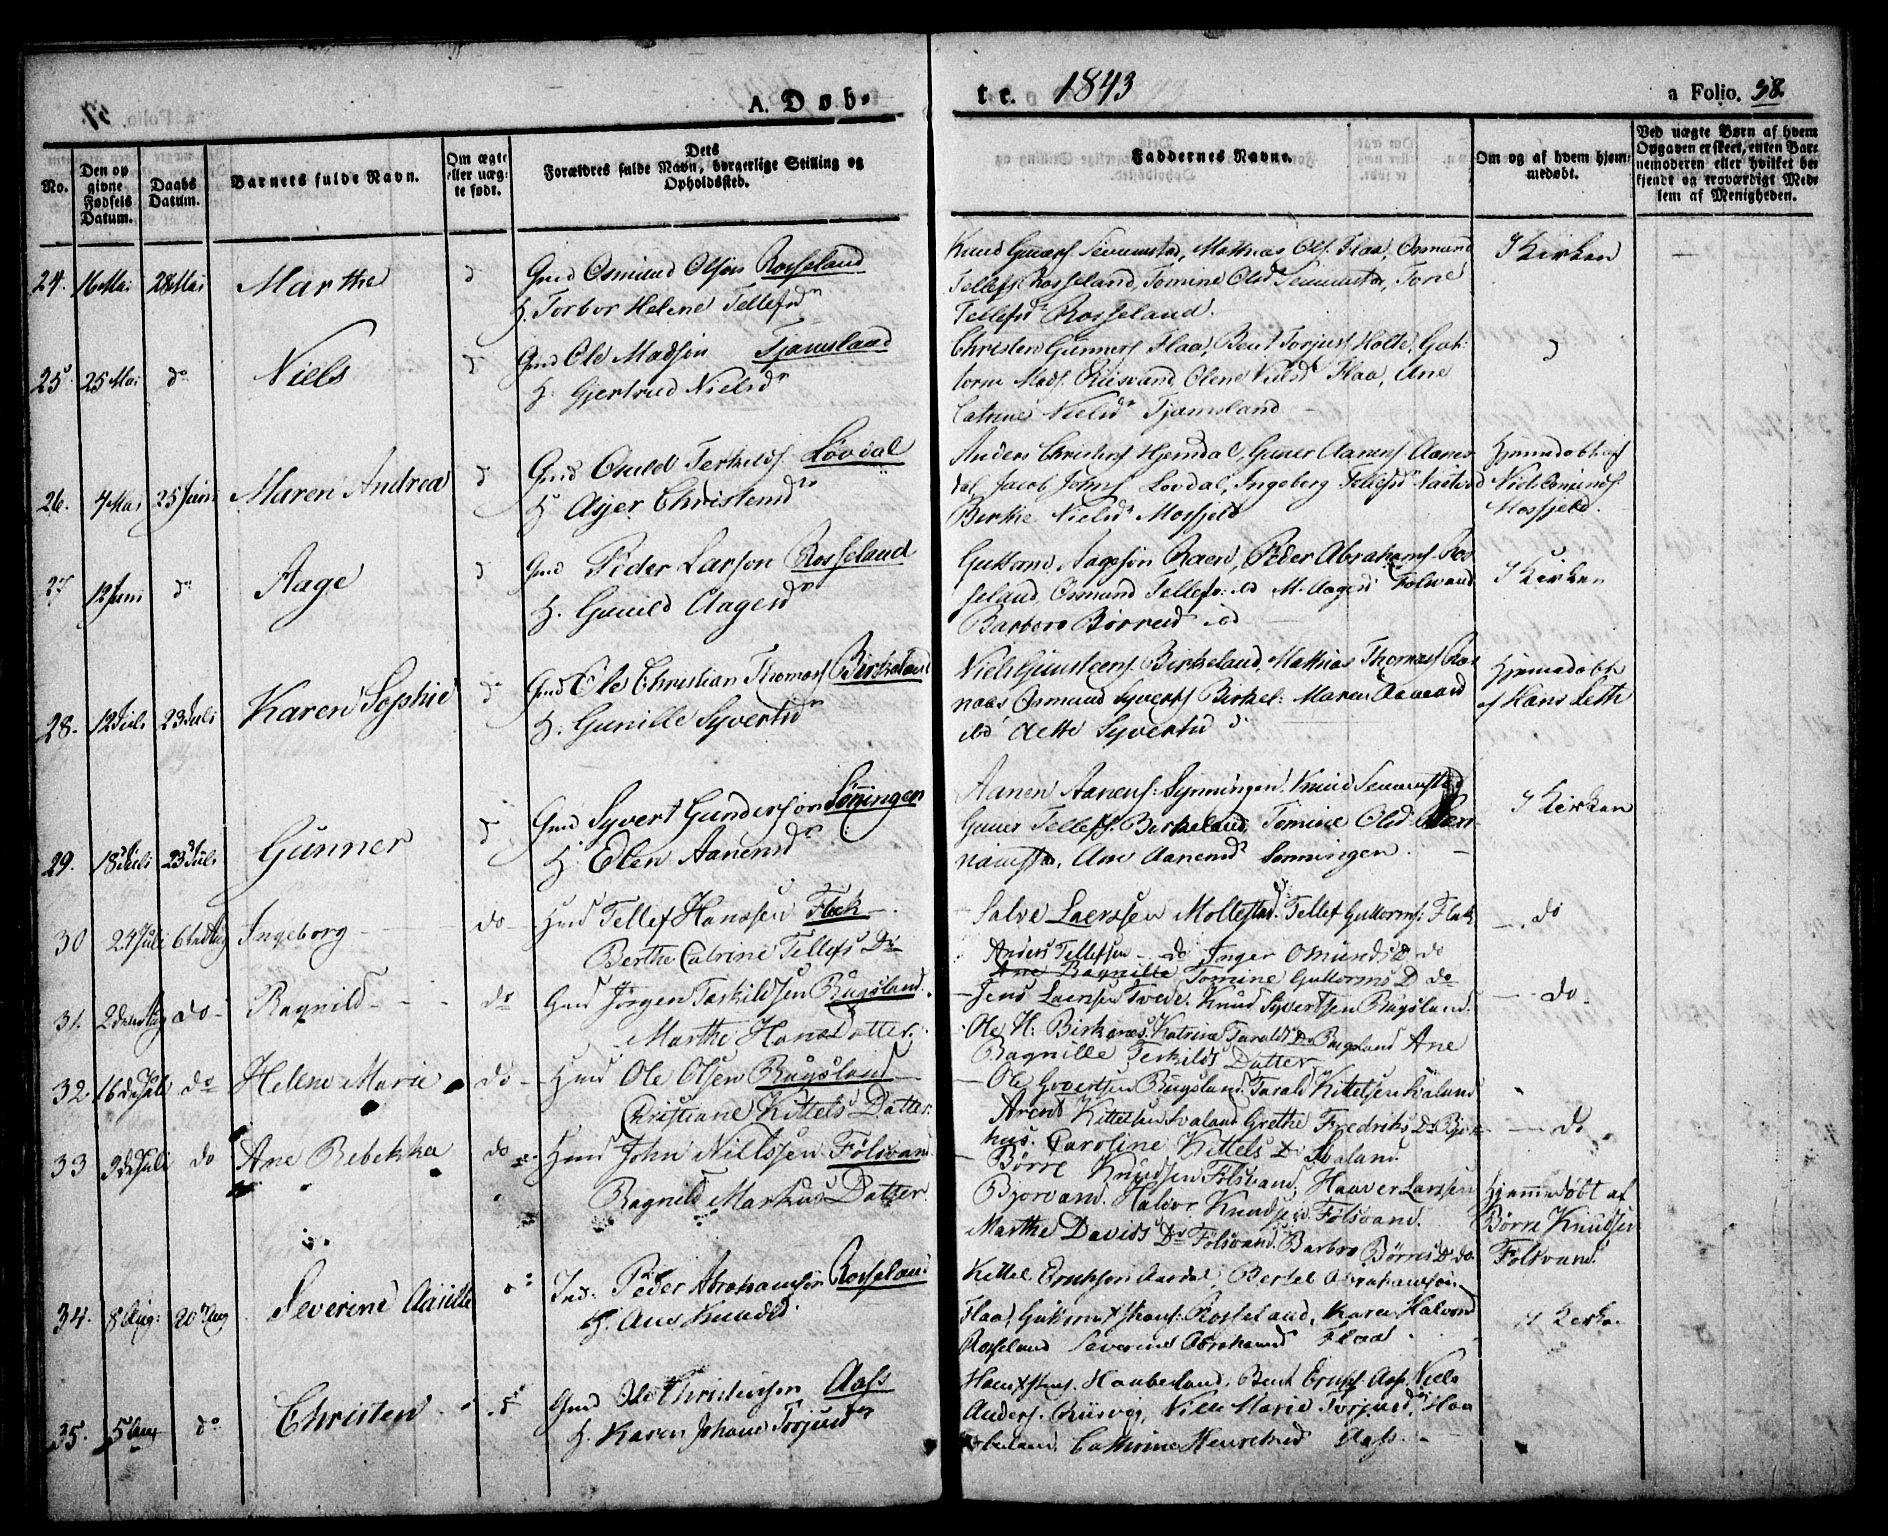 A. Døb-
te. 1843
a Folio. 38.
No.
Den op
givne
Fødsels
Datum.
Daabs
Datum.
Barnets fulde Navn.
Om ægte
eller uæg-
te født.
Dets
Forældres fulde Navn, borgerlige Stilling og
Opholdssted.
Faddernes Navne.
Om og af hvem hjem-
medøbt.
Ved uægte Børn af hvem
Opgaven er skeet, enten Bar-
nemoderen eller hvilket be-
kjendt og troværdigt Med-
lem af Menigheden.
24. 16 Mai 28 Mai Marthe
Gmd Osmund Olsøn Rosseland
H. Torbor Helene Tellefsd
Mathias Ols. Flaa, Osmund
Tellefs. Rosseland, Tomine Olsd
Tellefsd Rosseland.
I Kirken
25. 25 Mai do Niels
Gmd Ole Madsøn Tjamsland
H. Gjertrud Nielsd
Christen Gunners Flaa, Bent Torjus Holte, Gut-
torm Mads. Olene Nielsd Flaa, Ane
Catrine Nielsd Tjamsland
26. 4 Mai 25 Juni Maren Andrea
Gmd Terkilds Løvdal
H Asjer Christensd
Anders Christens Hjemdal, Gunner Aanens Aanes-
dal, Jacob Johns Lovdal, Ingeberg Tellefsd
Birthe Nielsd Mosfjeld
Hjemmedøbt af
Niels Osmunds
Mosfjeld.
27. 12 Juni do Aage
Gmd Peder Larsøn Rosseland
H. Gunild Aagesd
Guttorm Aagesøn Raen, Peder Abrahams. Ros-
seland, Osmund Tellefs. ibd M. Aagesd Følsvand
Barboro Børresd ibd
I Kirken
28. 12 Juli 23 Juli Karen Sophie do
Gmd Ole Christian Thomass Birkeland
H. Gunille Syvertsd
Niels Gunsteens. Birkeland, Mathias Thomass
naas Osmund Syverts Birkel: Maren
ibd Aette Syvertsd
Hjemmedøbt
af Hans Leth
29. 18 Juli 23 Juli Gunner
Gmd Syvert Gundersøn Sønningen
H. Elen Aanensd
Aanen Aanens: Synningen, Knud
Gunner Tellefs. Birkeland, Tomine Olsd
Ane Aanensd Sønningen.
I Kirken
30 24 Juli 6te Aug Ingeborg do
Hmd Tellef Hanssen Fleck
Berthe Catrine Tellefs Dr
Salve Laerssen Mollestad. Tellef Guttorms: Flek
Anders Tellefsen do Inger Omunds D. do
Ane Ragnille Tomine Guttorms D do
do
31. 2den Aug do Ragnild do
Gmd Jørgen Taskildsen Rugsland.
Marthe Hans Datter
Jens Laerssen Tvede. Knud Syvertsen Rugsland.
Ole H: Birkenes. Katrine Taralds Dr Rugsland Ane
Ragnille Terkilds Datter
do
32. 16de Juli do Helene Marie do
Hmd Ole Olsen Rugsland
Christiane Kittels Datter.
Ole Gvertsen Rugsland. Tarald Kittelsen Svaland
Arent Kittelsen Svaland Grethe Fredriks Dr Bjor-
hus. Caroline Kittels Dr Svaland
do
33 3de Juli do Ane Rebekka do
Hmd John Nillssen Følsvand
Ragnild Markus Datter.
Børre Knudsen Følsvand. Haaver Larssen
Bjorvand. Haldor Knudsen Følsvand.
Marthe Davids Dr Følsvand. Barbro Børres Dr do
Hjemmedøbt af
Børre Knudsen
Følsvand
34. 8 Aug: 20 Aug Severine Aasille
Ind: Peder Abrahamsøn Rosseland
H. Ane Knudsd.
Kittel Eriksøn Aardal, Bertel Abrahamsøn
Flaa, Rosseland, Karen Halvorsd
Rosseland Severine Abrahamsd Flaa
I Kirken
35. 5 Aug do Christen
Gmd Ole Christensøn Aass
H. Karen Johane Torjusd
Haabesland, Bent Aas, Niels
Anders. Maria Torjusd, Haa-
besland, Cathrine Henriksd Aass.